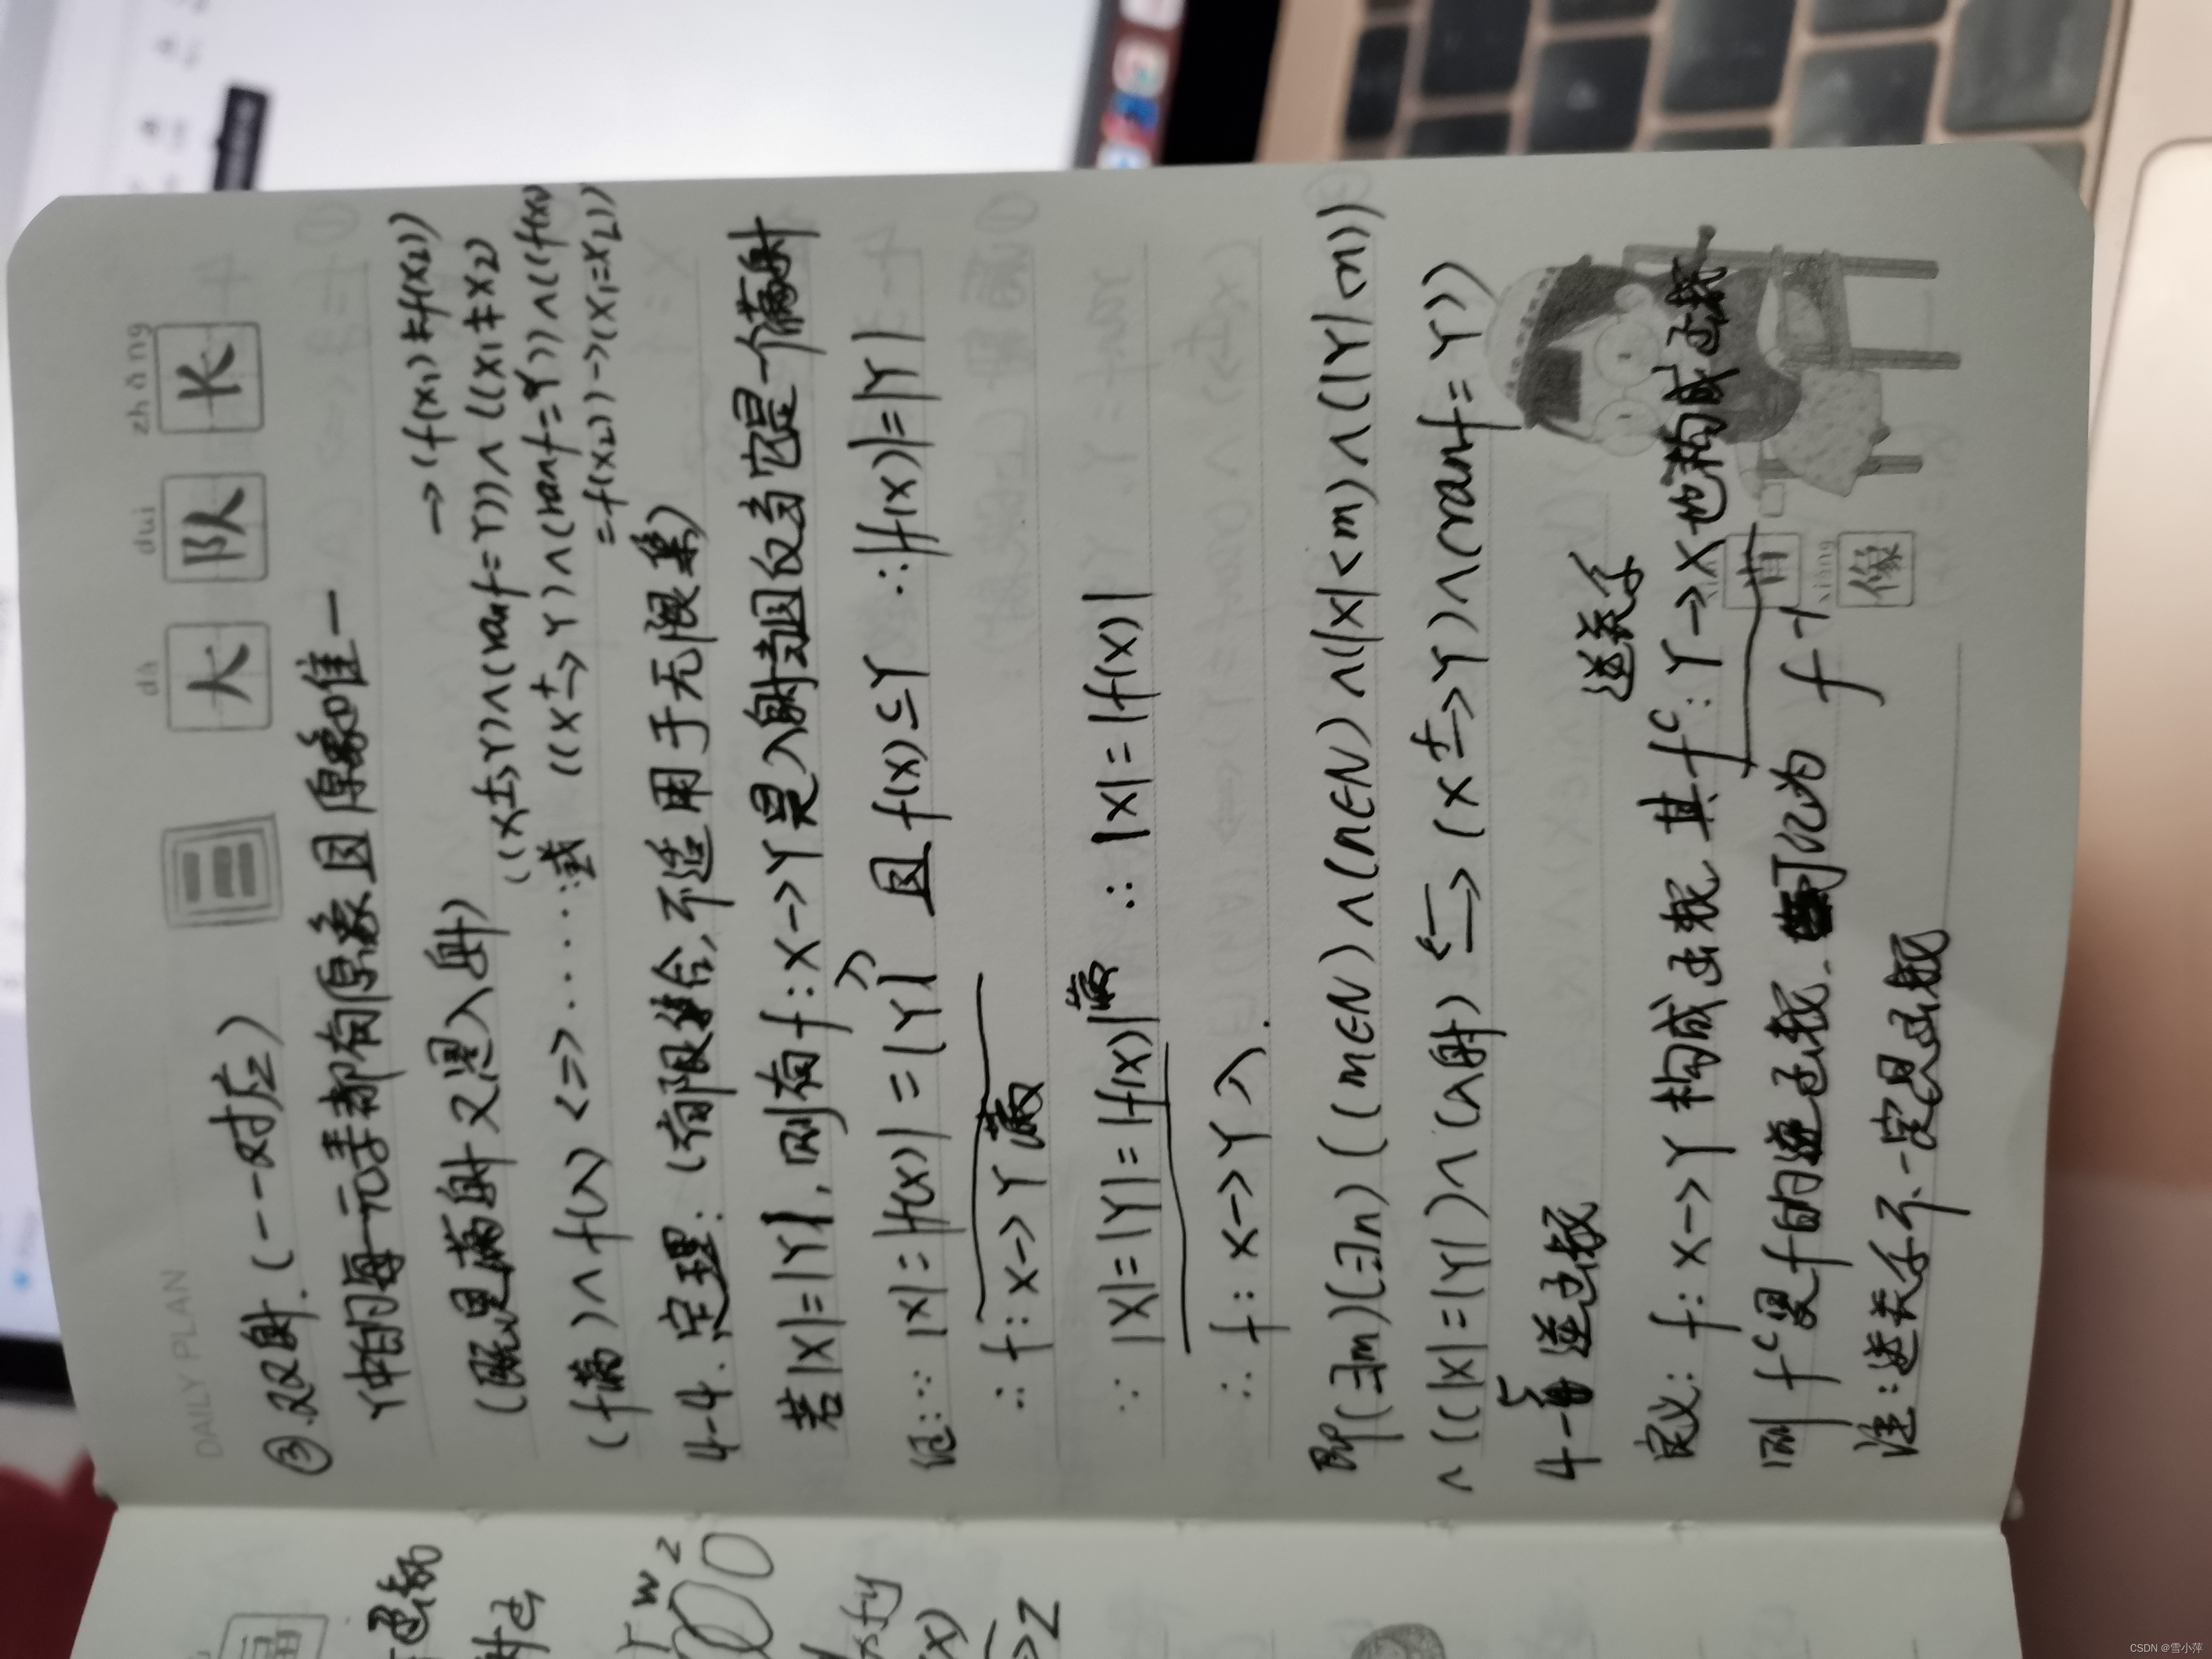 DAILY PLAN
dà duì zhǎng
大 队 长
③.双射.(一一对应)
Y中的每一元素都有原象且原象唯一
(既是满射又是入射)
→(f(x₁)≠f(x₂))
((X→Y)∧(ranf=Y))∧((x₁≠x₂)
(f满)∧f(入) <=> ·····或 ((X→Y)∧(ranf=Y))∧((f(x₁)
=f(x₂))→(x₁=x₂))
4-4.定理:(有限集合,不适用于无限集)
若|X|=|Y|,则有f:X→Y是入射当且仅当它是一个满射
证:∵|X|=|f(X)|=|Y| 且f(X)⊆Y ∴|f(X)|=|Y|
入
∴f:X→Y满
∵|X|=|Y|=|f(X)|满 ∴|X|=|f(X)|
∴f:X→Y入.
即(∃m)(∃n)((m∈N)∧(n∈N)∧(|X|<m)∧(|Y|<m))
∧((|X|=|Y|)∧(入射)<=>(X→Y)∧(ranf=Y))
4-5 逆函数
逆关系
定义:f:X→Y构成函数,其fᶜ:Y→X也构成函数
则fᶜ是f的逆函数.可记为 f⁻¹
注:逆关系不一定是函数
肖
xiàng
像
W
Z
CSDN @雪小萍